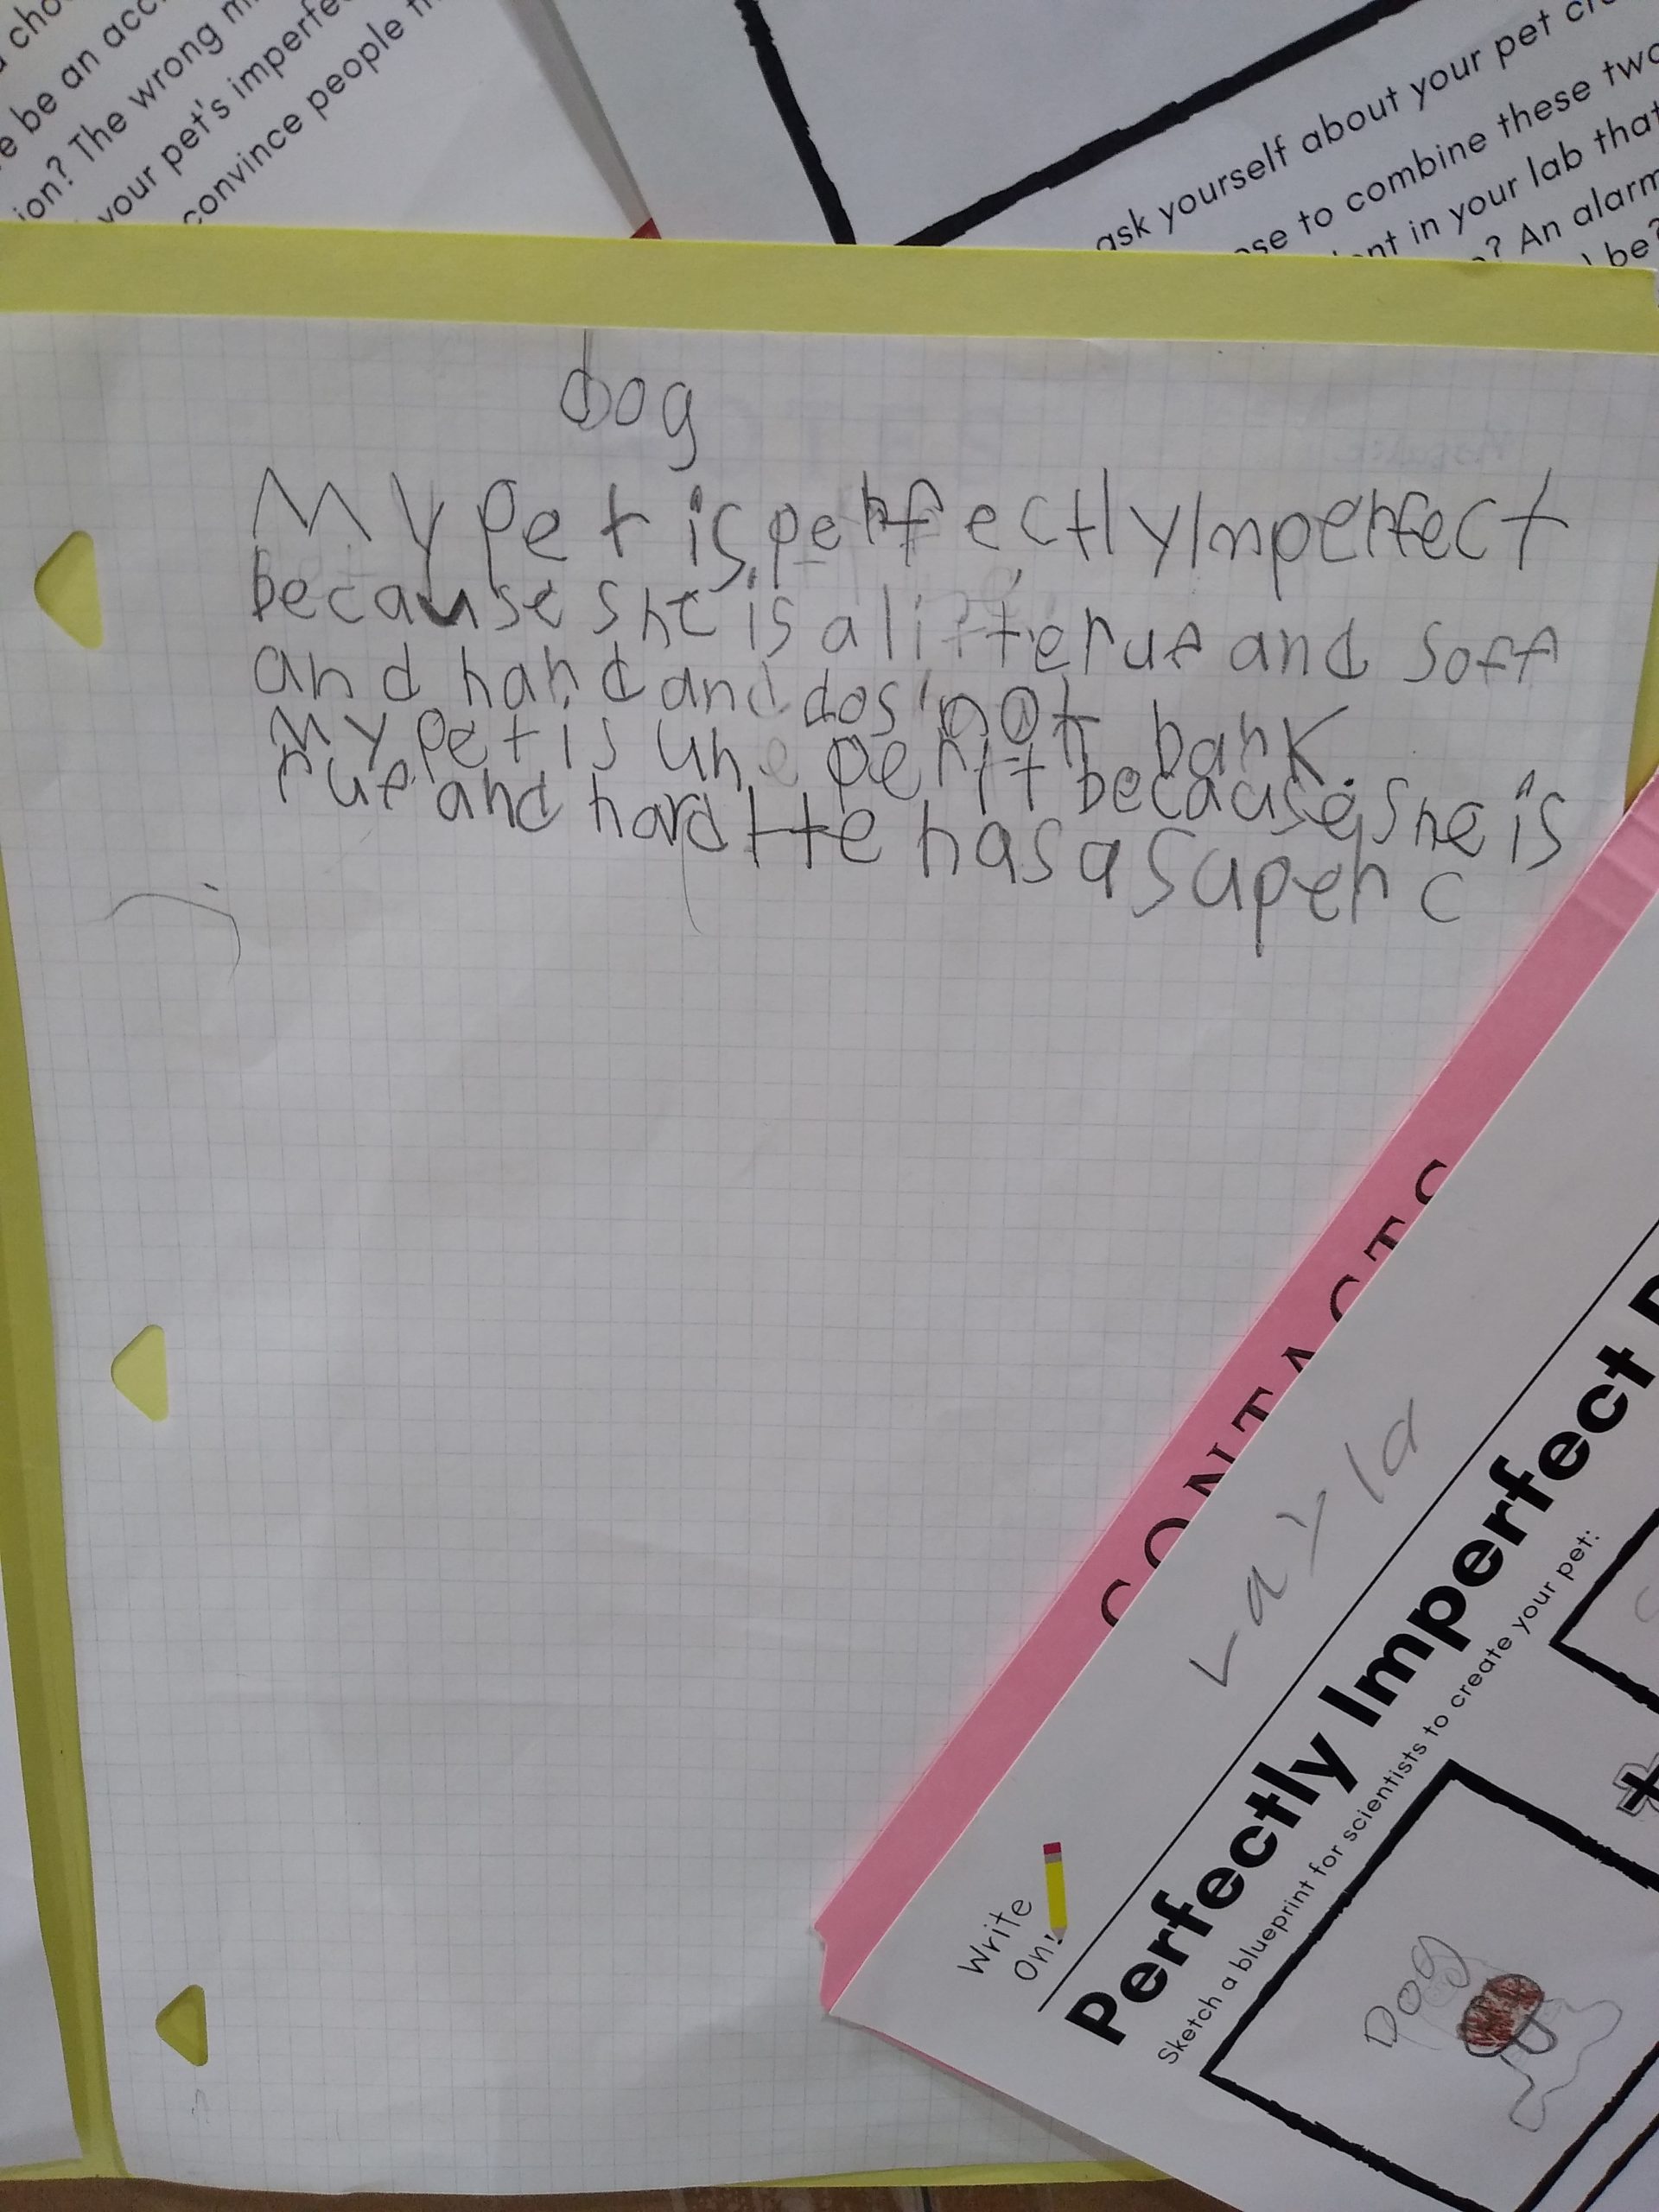 d cho
e be an acc
ion? The wrong m
your pet's imperfe
convince people
ask yourself about your pet cr
ose to combine these two
ent in your lab that
? An alarm
be?
dog
My Pet is perfectly Imperfect
because she is a litte ruf and soft
and hard and dos not bark.
My pet is une perfit because she is
ruf and hard tte has a super c
CONTACTS
Layla
Write
On!
Perfectly Imperfect P
Sketch a blueprint for scientists to create your pet:
Dog
+